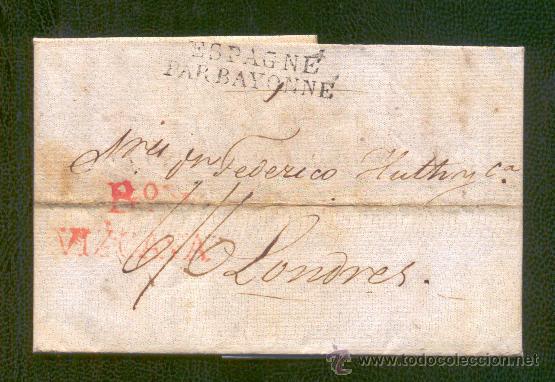 ESPAGNE
PAR BAYONNE
Sres. Dn. Federico Huth y Ca.
Bo.
VIZCAYA
Londres.
www.todocoleccion.net